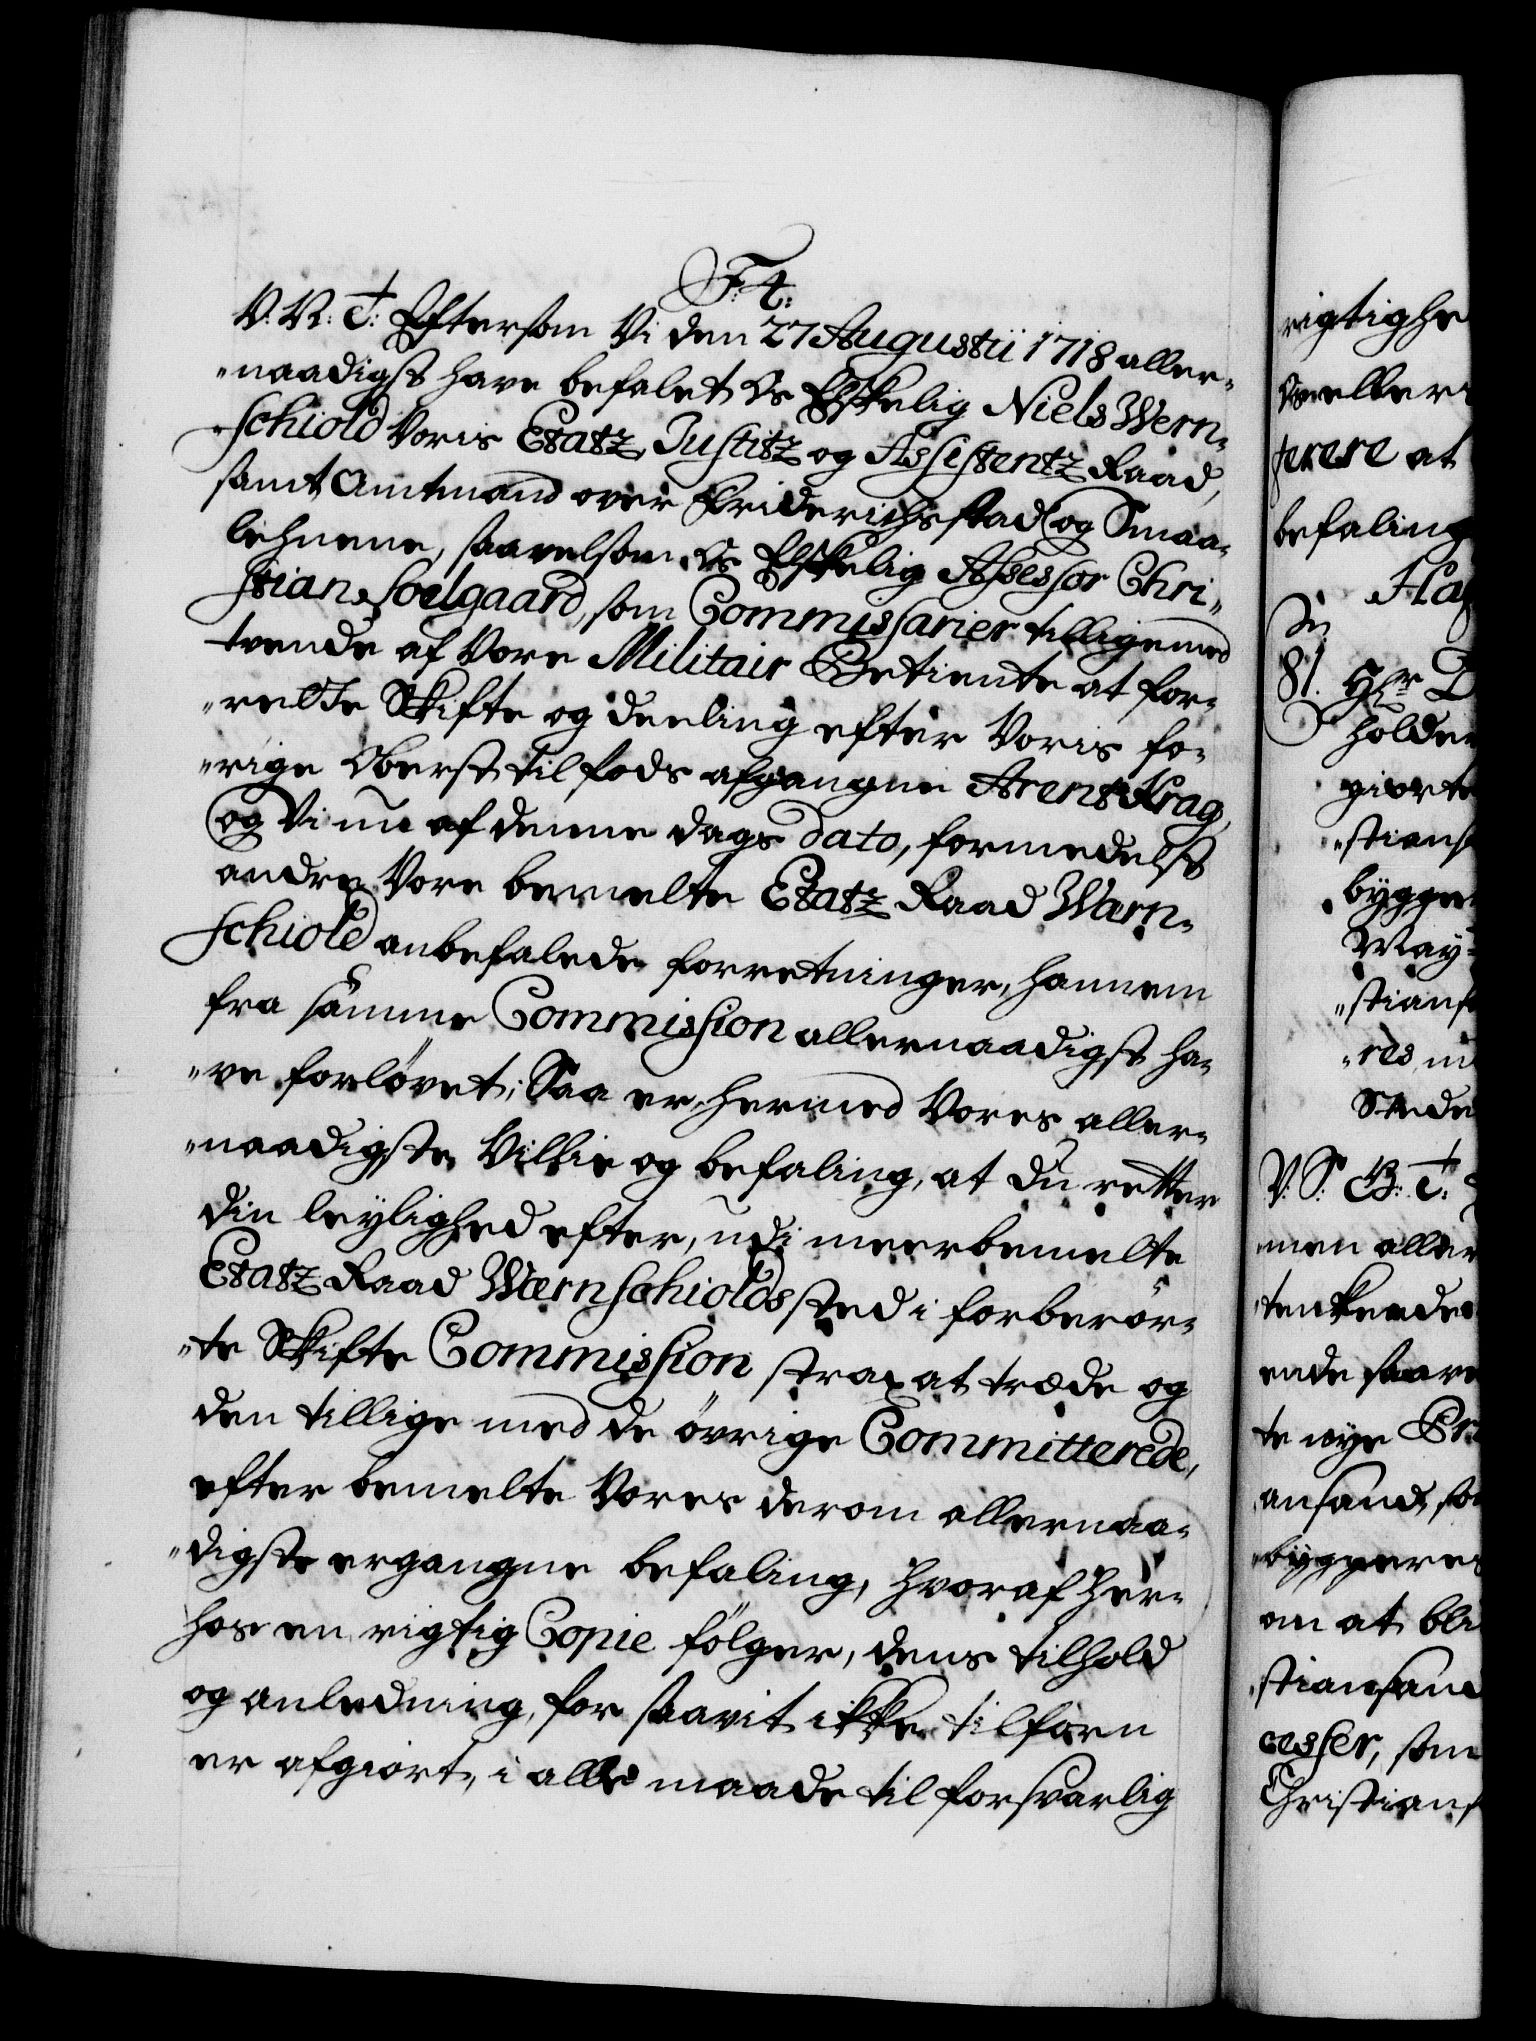 F: 4:
V: N: T: Eftersom Vi den 27 Augustii 1718 aller-
naadigst have befalet Os Elskelig Niels Wern-
schiold Voris Etatz, Justitz og Assistentz Raad,
samt Amtmand over Friderichsstad og Smaa-
lehnene, saavelsom Os Elskelig Assessor Chri-
stian Soelgaard, som Commissarier tilligemed
tvende af Vore Militair Betiente at for-
rette Skifte og deeling efter Voris fo-
rige Oberst til fods afgangne Arent Krag,
og Vi nu af denne dags dato, formedelst
andre Vore bemelte Etatz Raad Wern-
schiold anbefalede forretninger, hannem
fra samme Commission allernaadigst ha-
ve forlóvet; Saa er hermed Vores aller-
naadigste Villie og befaling, at du retter
din leylighed efter, udi meerbemelte
Etatz Raad Wernschiolds sted i forberör-
te Skifte Commission strax at træde og
den tillige med de övrige Committerede,
efter bemelte Vores derom allernaa-
digste ergangne befaling, hvoraf her-
hos en rigtig Copie fölger, dens tilhold
og anledning, for saavit ikke tilforn
er afgiort, i alle maade til forsvarlig
rigtighe
befaling
81. Hr D
holde
giorte
stians
bygge
May
stians
res
Stede
V: S: B: T:
men aller
tenkende
ende saave
te nye Pr
ansand, so
byggere
om at bli
stiansand
cesser, som
Christians